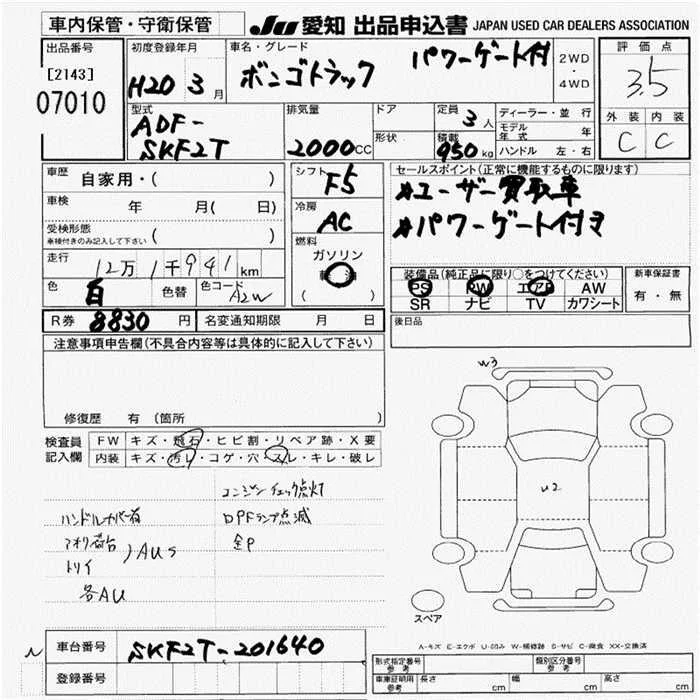 車内保管・守衛保管
JU 愛知 出品申込書 JAPAN USED CAR DEALERS ASSOCIATION
出品番号
[2143]
07010
初度登録年月
H20 3月
車名・グレード
ボンゴトラック パワーゲート付
2WD
・
4WD
評価点
3.5
外装 内装
C C
型式
ADF-
SKF2T
排気量
2000CC
ドア
形状
定員 3人
積載 950kg
ディーラー・並行
モデル年式 年
ハンドル 左・右
車歴 自家用・( )
車検 年 月( 日)
受検形態
車検付きのみ記入して下さい ( )
走行 12万1千941km
色 白 色替 色コード A2W
シフト
F5
冷房
AC
燃料
ガソリン
軽油
( )
セールスポイント(正常に機能するものに限ります)
#ユーザー買取車
#パワーゲート付き
装備品(純正品に限り○をつけてください)
PS PW エアB AW
SR ナビ TV カワシート
新車保証書
有・無
R券 8830円 名変通知期限 月 日
後日品
注意事項申告欄(不具合内容等は具体的に記入して下さい)
修復歴 有 (箇所 )
検査員
記入欄
FW キズ・飛石・ヒビ割・リペア跡・X要
内装 キズ・汚レ・コゲ・穴・スレ・キレ・破レ
エンジンチェック点灯
ハンドルカバー有 DPFランプ点滅
アオリ荷台 全P
トリイ
AUS
各AU
W3
U2
スペア
A-キズ E-エクボ U-凹み W-補修跡 S-サビ C-腐食 XX-交換済
車台番号 SKF2T-201640
登録番号
形式指定番号
参考
類別区分番号
参考
車庫証明用
参考
長さ cm 幅 cm 高さ cm